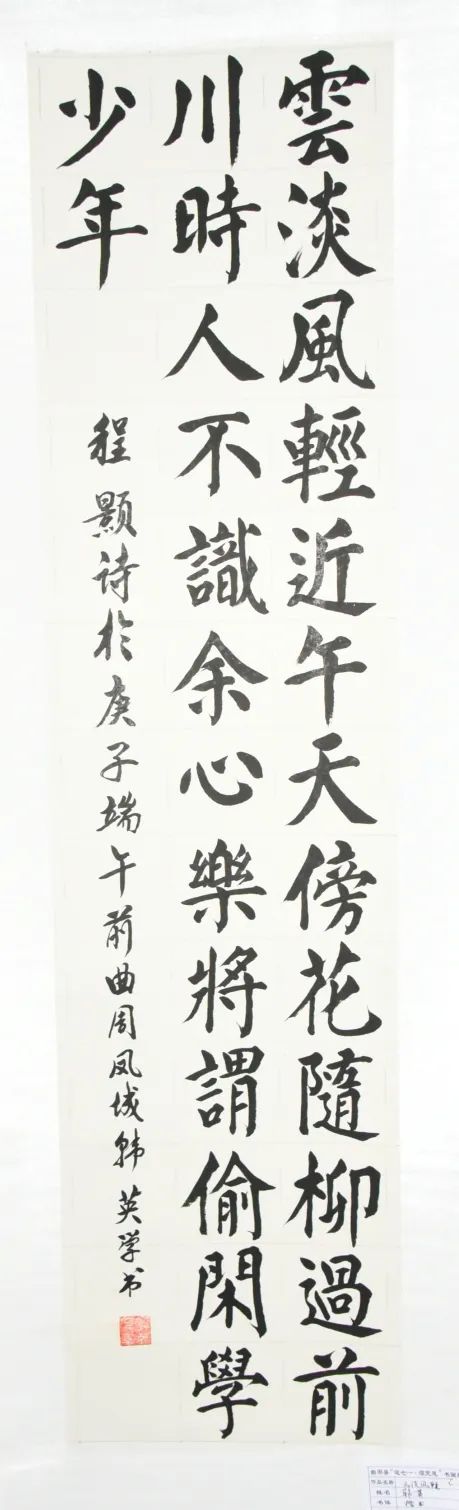 雲淡風輕近午天傍花隨柳過前
川時人不識余心樂將謂偷閑學
少年
程顥诗於庚子端午前曲周凤城韩英学书
作品名称
姓名
书体